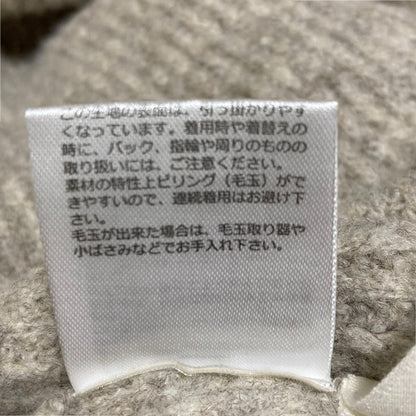 この生地の表面は、引っ掛かりやす
くなっています。着用時や着替えの
時に、バック、指輪や周りのものの
取り扱いには、ご注意ください。
素材の特性上ピリング（毛玉）がで
きやすいので、連続着用はお避け下
さい。
毛玉が出来た場合は、毛玉取り器や
小ばさみなどでお手入れ下さい。